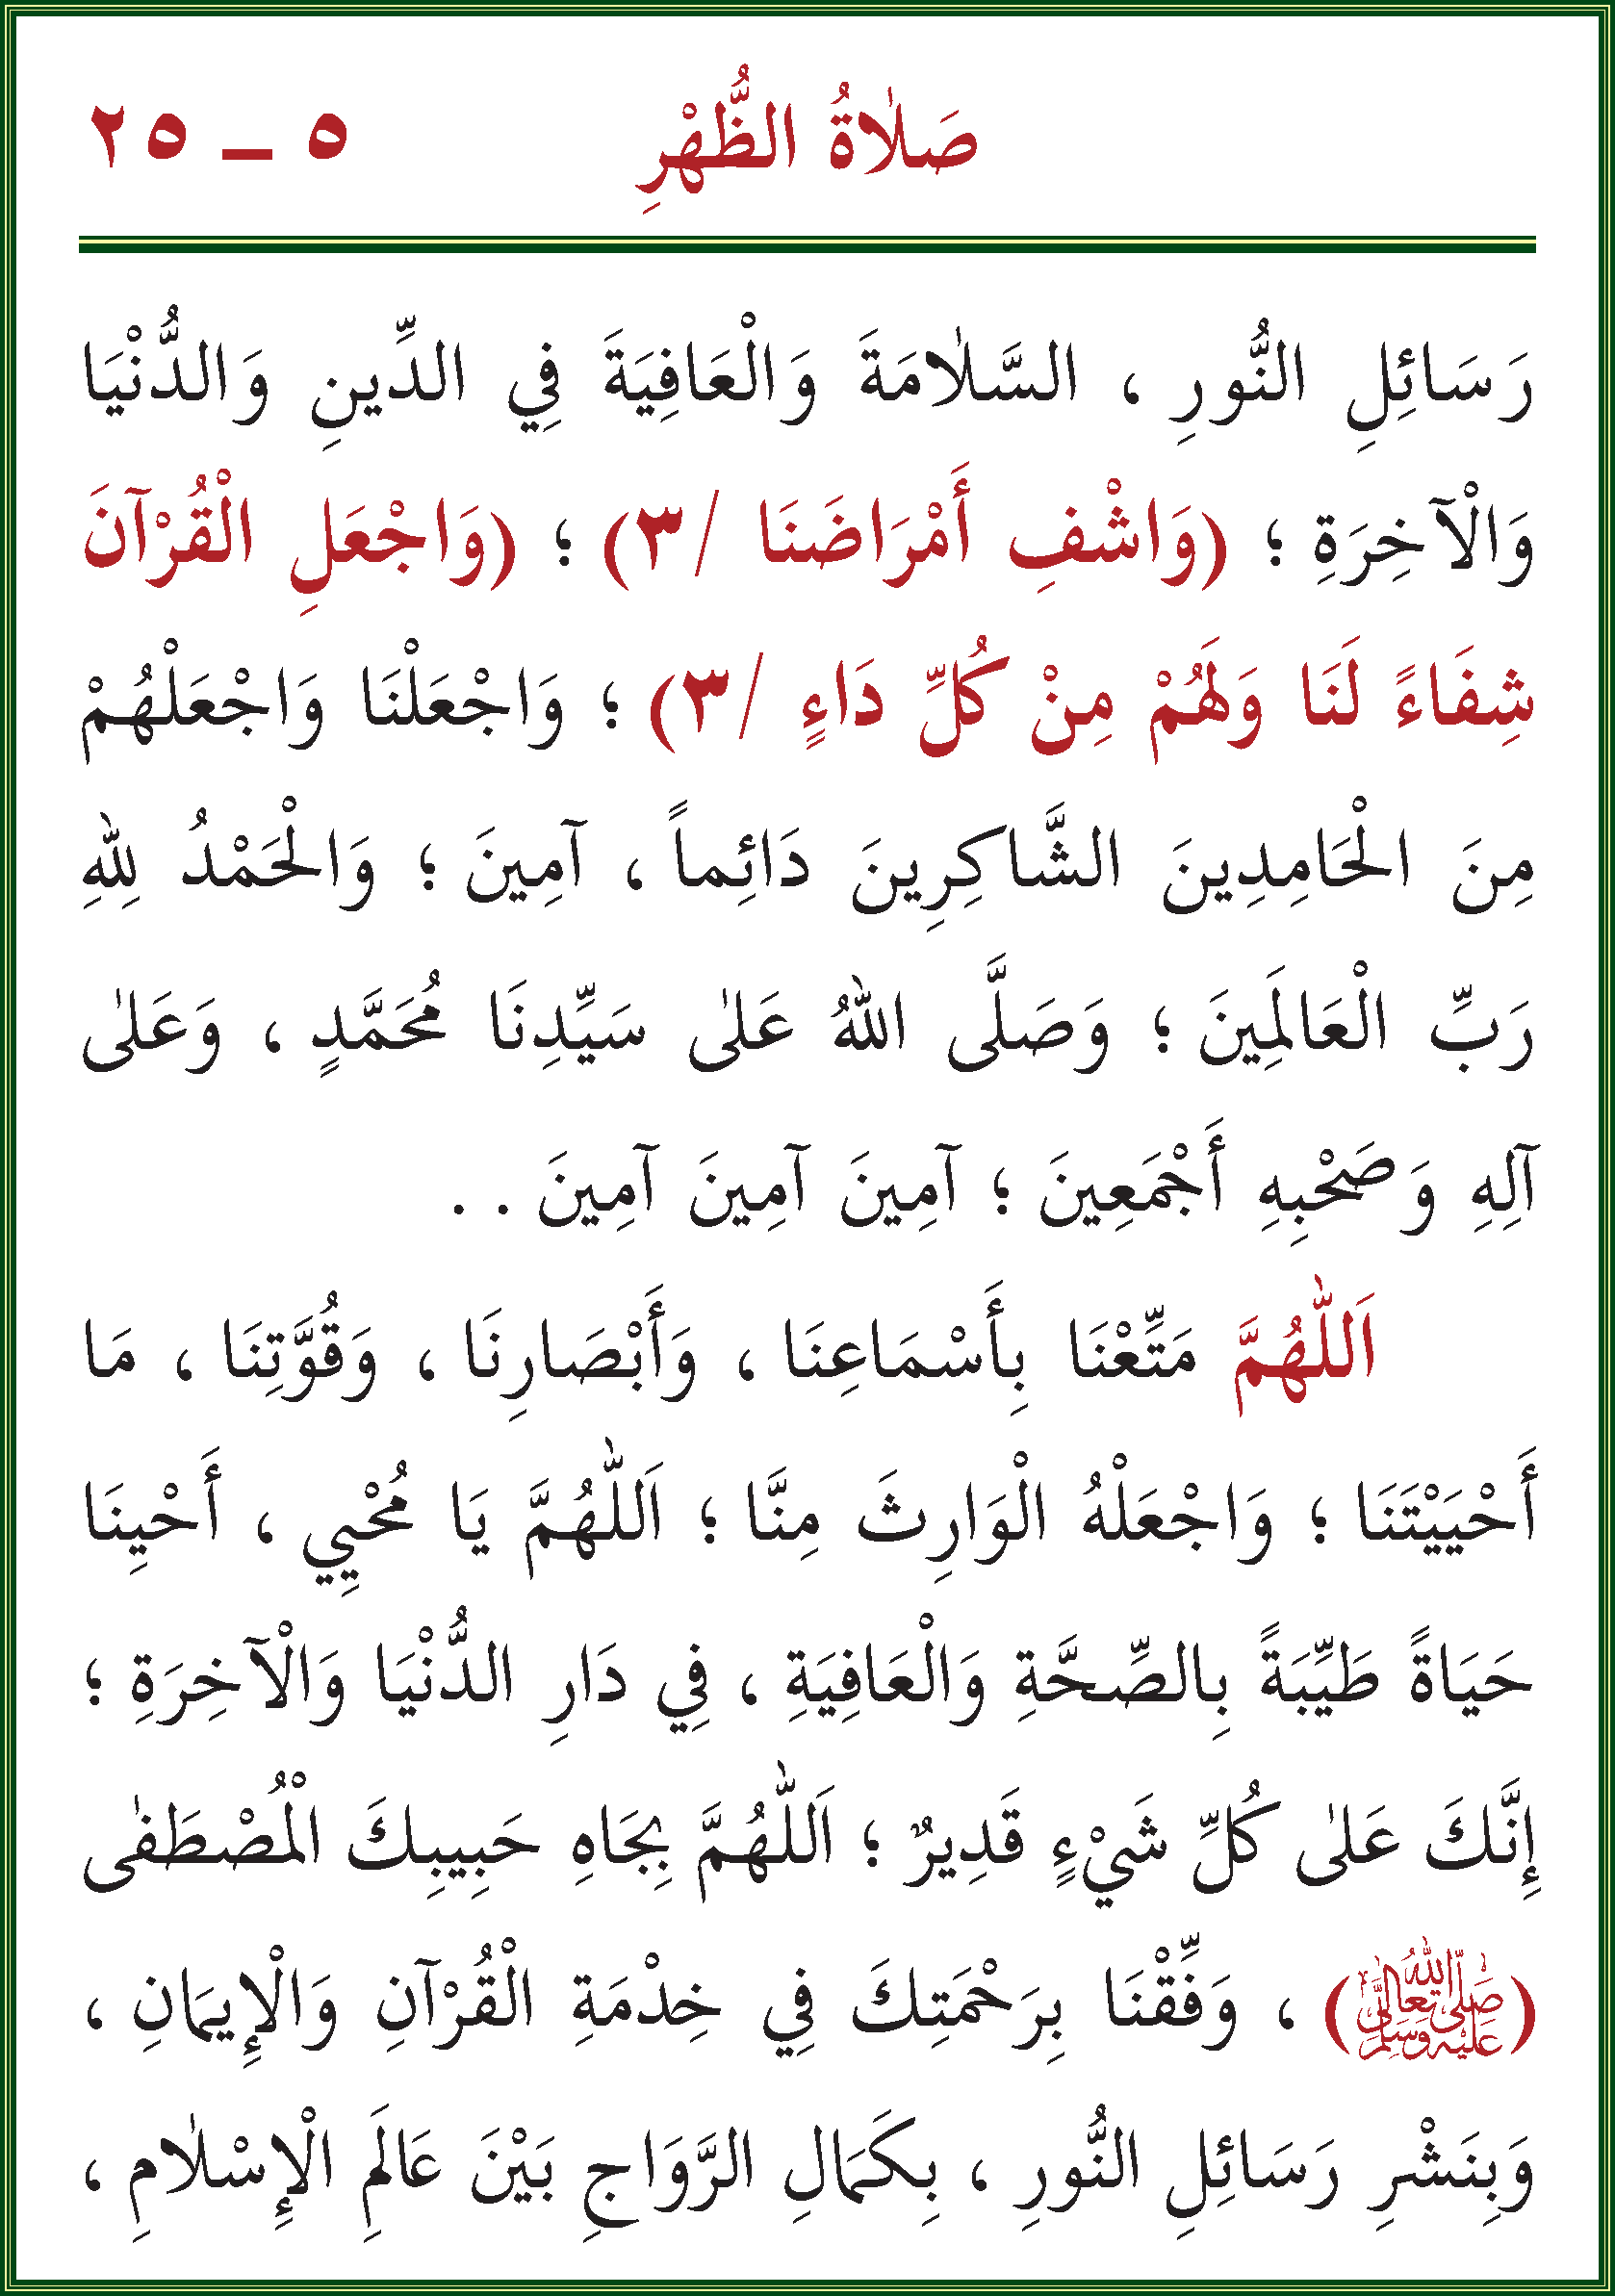 صَلَاةُ الظُّهْرِ ٥ ــ ٢٥
رَسَائِلِ النُّورِ ، السَّلَامَةَ وَالْعَافِيَةَ فِي الدِّينِ وَالدُّنْيَا
وَالْآخِرَةِ ؛ (وَاشْفِ أَمْرَاضَنَا /٣) ؛ (وَاجْعَلِ الْقُرْآنَ
شِفَاءً لَنَا وَلَهُمْ مِنْ كُلِّ دَاءٍ /٣) ؛ وَاجْعَلْنَا وَاجْعَلْهُمْ
مِنَ الْحَامِدِينَ الشَّاكِرِينَ دَائِماً ، آمِينَ ؛ وَالْحَمْدُ لِلّٰهِ
رَبِّ الْعَالَمِينَ ؛ وَصَلَّى اللهُ عَلٰى سَيِّدِنَا مُحَمَّدٍ ، وَعَلٰى
آلِهِ وَصَحْبِهِ أَجْمَعِينَ ؛ آمِينَ آمِينَ آمِينَ . .
اَللّٰهُمَّ مَتِّعْنَا بِأَسْمَاعِنَا ، وَأَبْصَارِنَا ، وَقُوَّتِنَا ، مَا
أَحْيَيْتَنَا ؛ وَاجْعَلْهُ الْوَارِثَ مِنَّا ؛ اَللّٰهُمَّ يَا مُحْيِي ، أَحْيِنَا
حَيَاةً طَيِّبَةً بِالصِّحَّةِ وَالْعَافِيَةِ ، فِي دَارِ الدُّنْيَا وَالْآخِرَةِ ؛
إِنَّكَ عَلٰى كُلِّ شَيْءٍ قَدِيرٌ ؛ اَللّٰهُمَّ بِجَاهِ حَبِيبِكَ الْمُصْطَفٰى
(صَلَّى اللهُ تَعَالٰى عَلَيْهِ وَسَلَّمَ) ، وَفِّقْنَا بِرَحْمَتِكَ فِي خِدْمَةِ الْقُرْآنِ وَالْإِيمَانِ ،
وَبِنَشْرِ رَسَائِلِ النُّورِ ، بِكَمَالِ الرَّوَاجِ بَيْنَ عَالَمِ الْإِسْلَامِ ،